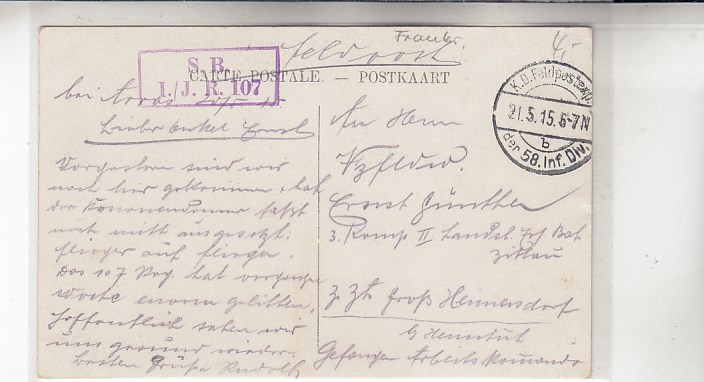 Frankr.
4,-
Feldpost
S. B.
1./J. R. 107
CARTE POSTALE. — POSTKAART
K.D. Feldpostexp.
21.5.15. 6-7N
b
der 58. Inf. Div.
bei Arras 20/5 15
Lieber Onkel Ernst
Vorgestern sind wir
noch hier gekommen, hat
der Kanonendonner fast
noch nicht ausgesetzt.
Flieger auf Flieger.
Das 107 Reg. hat vergangene
Woche enorm gelitten,
Hoffentlich sehen wir
uns gesund wieder.
Besten Gruß Rudolf
An Herrn
Vzfldw.
Ernst Günther
3. Komp II Landst. Inf Bat
Zittau
z. Zt. Groß Hennersdorf
b/ Herrnhut
Gefangen Arbeitskommando